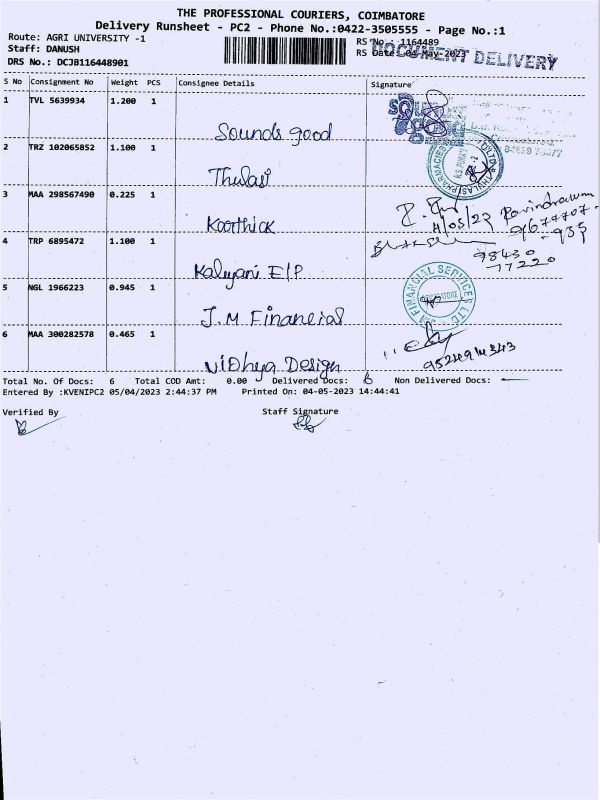 THE PROFESSIONAL COURIERS, COIMBATORE
Delivery Runsheet - PC2 - Phone No.:0422-3505555 - Page No.:1
Route: AGRI UNIVERSITY -1
RS No.: 1164489
Staff: DANUSH
RS Date: 04-May-2023
DOCUMENT DELIVERY
DRS No.: DCJB116448901
S No Consignment No Weight PCS Consignee Details Signature
1 TVL 5639934 1.200 1
Sounds good
2 TRZ 102065852 1.100 1
Thulasi
3 MAA 298567490 0.225 1
Karthick
4 TRP 6895472 1.100 1
98430
77220
Kalyani E/P
5 NGL 1966223 0.945 1
FINANCIAL SERVICES LTD
J.M Financial
6 MAA 300282578 0.465 1
Vidhya Design
Total No. Of Docs: 6 Total COD Amt: 0.00 Delivered Docs: 6 Non Delivered Docs:
Entered By :KVENIPC2 05/04/2023 2:44:37 PM Printed On: 04-05-2023 14:44:41
Verified By Staff Signature